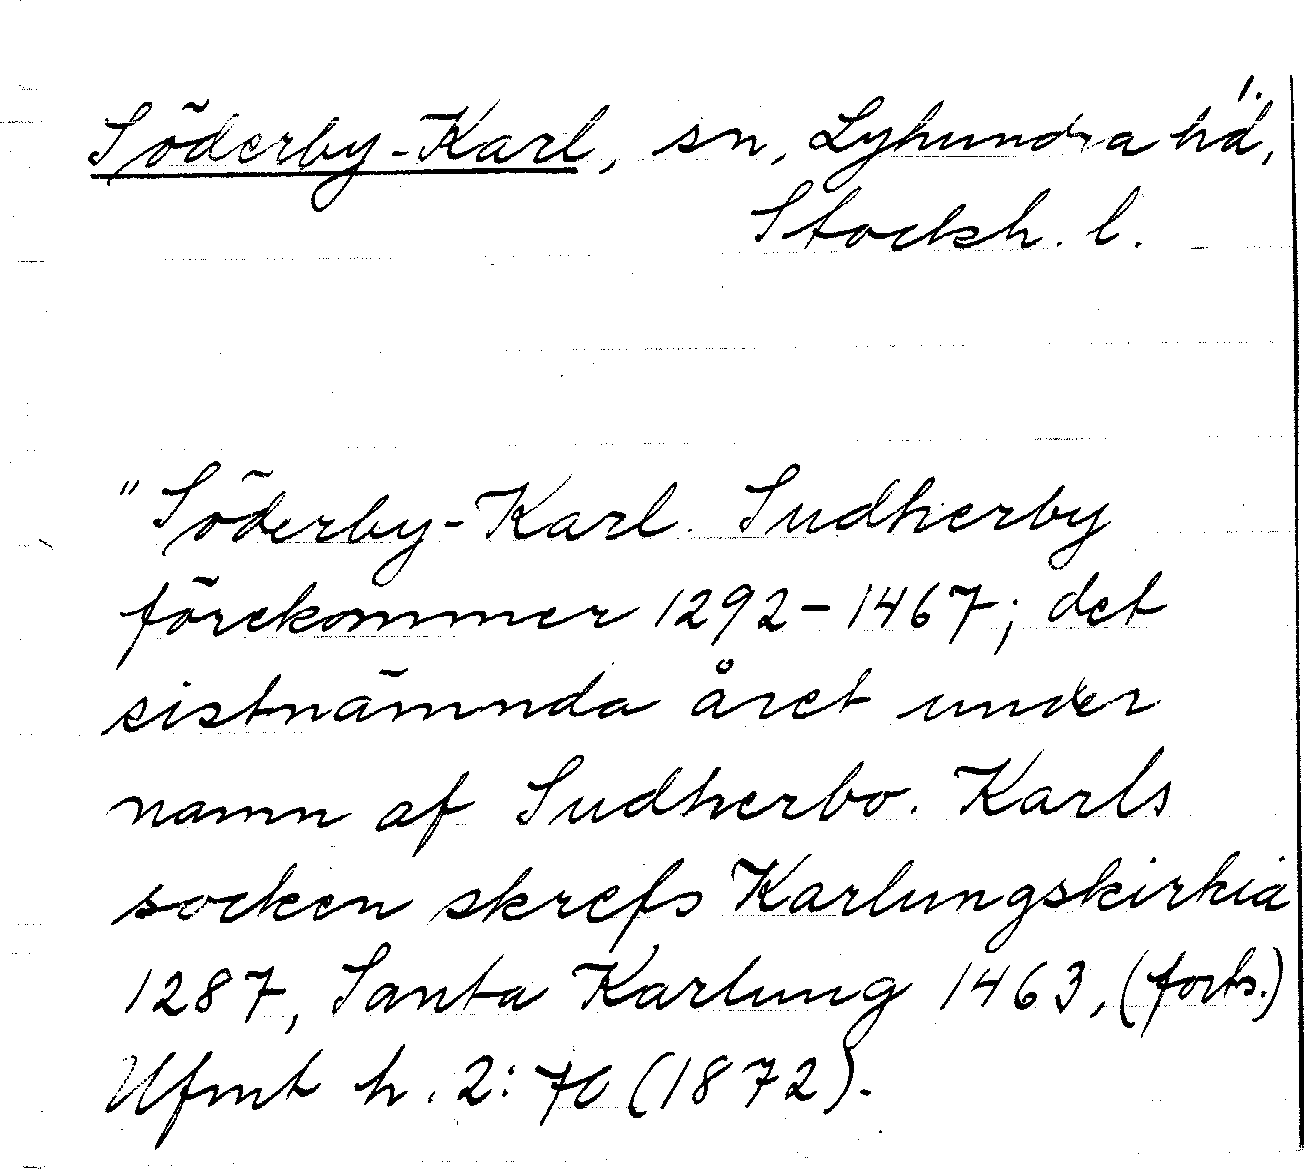 1.
Söderby-Karl, sn, Lyhundra hd,
Stocksh. l.
"Söderby-Karl. Sudherby
förekommer 1292-1467; det
sistnämnda året under
namn af Sudherbo. Karls
socken skrefs Karlungskirkia
1287, Santa Karlung 1463, (forts.)
Ufmt h. 2: 70 (1872).